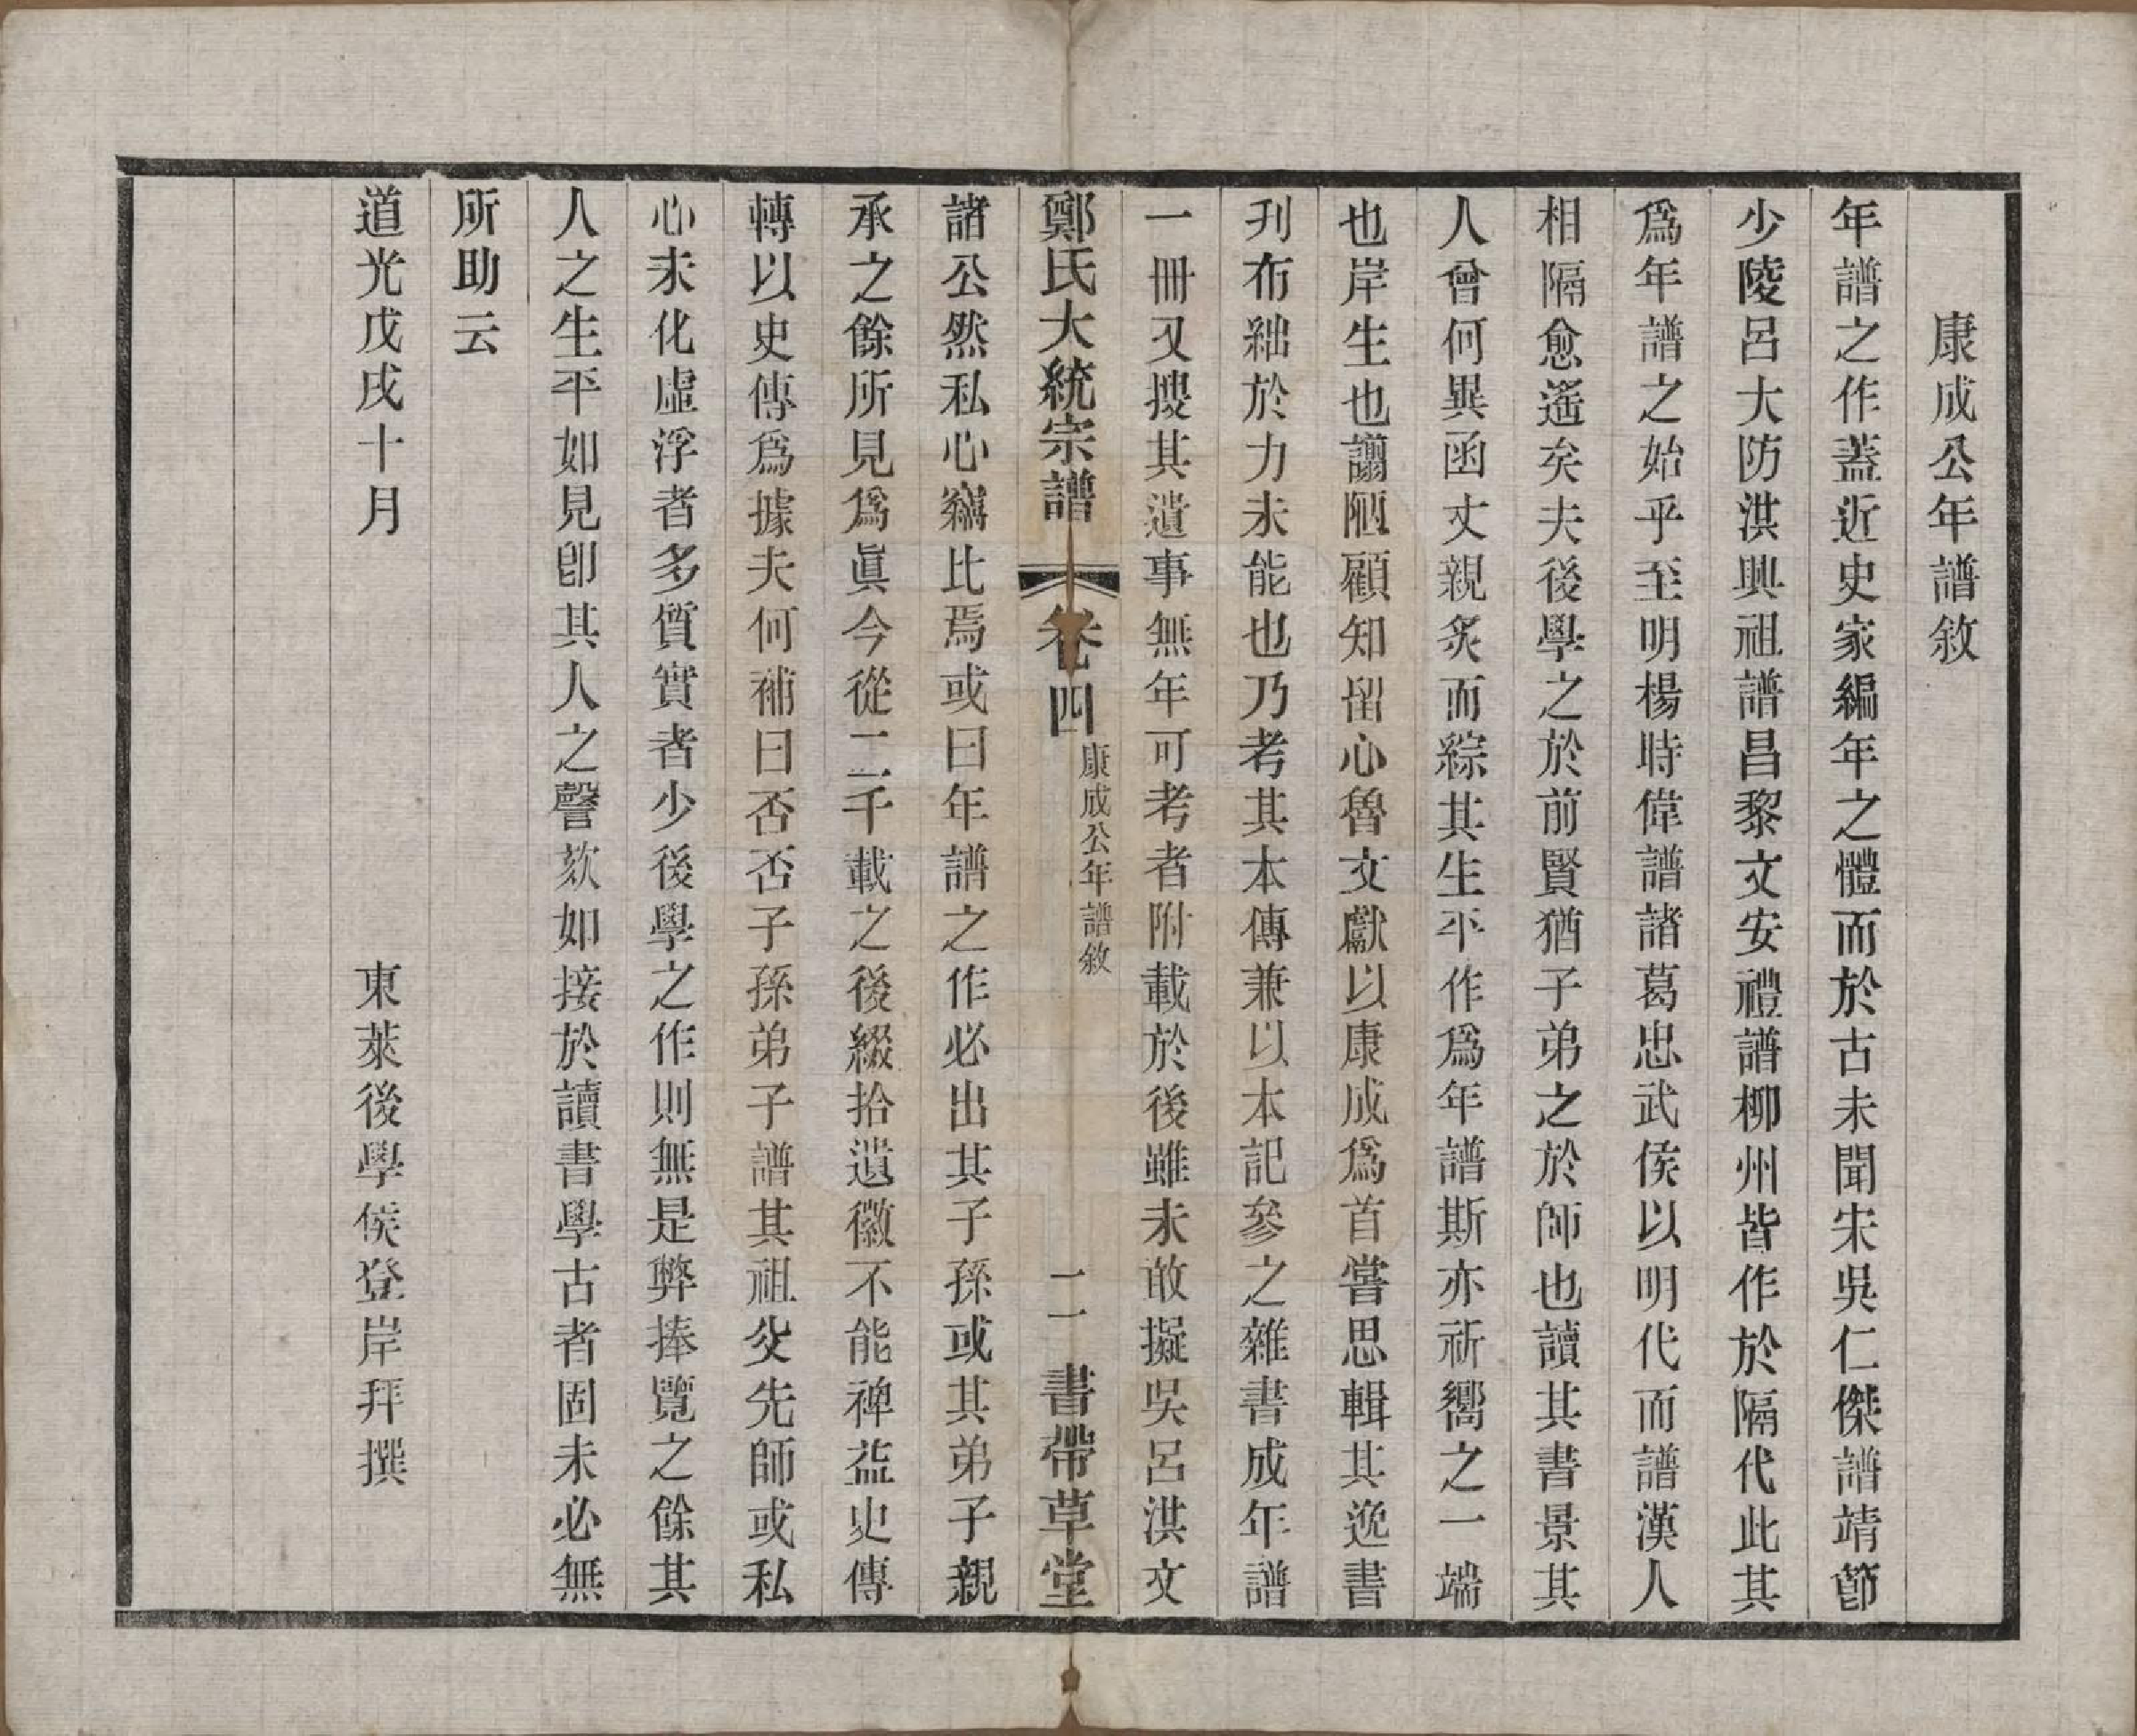 康成公年譜敘
年譜之作蓋近史家編年之體而於古未聞宋吳仁傑譜靖節
少陵呂大防洪興祖譜昌黎文安禮譜柳州皆作於隔代此其
爲年譜之始乎至明楊時偉譜諸葛忠武侯以明代而譜漢人
相隔愈遙矣夫後學之於前賢猶子弟之於師也讀其書景其
人曾何異函丈親炙而綜其生平作爲年譜斯亦祈嚮之一端
也岸生也譾陋顧知留心魯文獻以康成爲首嘗思輯其逸書
刋布絀於力未能也乃考其本傳兼以本記參之雜書成年譜
一冊又搜其遺事無年可考者附載於後雖未敢擬吳呂洪文
鄭氏大統宗譜 卷四 康成公年譜敘 二 書帶草堂
諸公然私心竊比焉或曰年譜之作必出其子孫或其弟子親
承之餘所見爲眞今從二千載之後綴拾遺徽不能裨益史傳
轉以史傳爲據夫何補曰否否子孫弟子譜其祖父先師或私
心求化虛浮者多質實者少後學之作則無是弊捧覽之餘其
人之生平如見卽其人之謦欬如接於讀書學古者固未必無
所助云
道光戊戌十月 東萊後學侯登岸拜撰